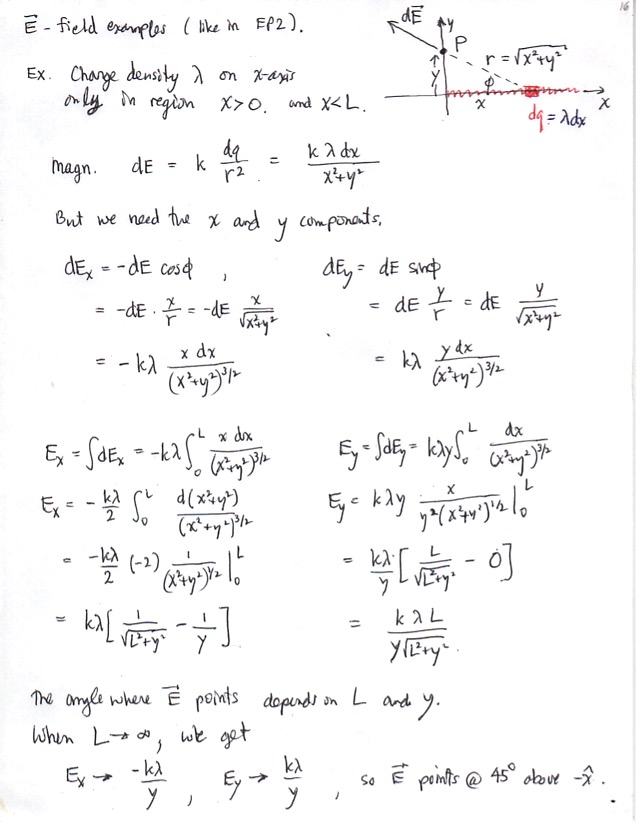 16
E⃗ - field examples (like in EP2).
dE⃗ y P r = √x²+y² y φ x x dq = λdx
Ex. Charge density λ on x-axis
only in region x>0. and x<L.
magn. dE = k dq/r² = k λ dx/x²+y²
But we need the x and y components.
dEx = -dE cosφ , dEy = dE sinφ
= -dE · x/r = -dE x/√x²+y² = dE y/r = dE y/√x²+y²
= -kλ x dx/(x²+y²)^3/2 = kλ y dx/(x²+y²)^3/2
Ex = ∫dEx = -kλ ∫₀ᴸ x dx/(x²+y²)^3/2 Ey = ∫dEy = kλy ∫₀ᴸ dx/(x²+y²)^3/2
Ex = - kλ/2 ∫₀ᴸ d(x²+y²)/(x²+y²)^3/2 Ey = kλy x/y²(x²+y²)^1/2 |₀ᴸ
= -kλ/2 (-2) 1/(x²+y²)^1/2 |₀ᴸ = kλ/y [ L/√L²+y² - 0 ]
= kλ [ 1/√L²+y² - 1/y ] = k λ L/y√L²+y² .
The angle where E⃗ points depends on L and y.
When L→∞, we get
Ex → -kλ/y , Ey → kλ/y , so E⃗ points @ 45° above -x̂ .